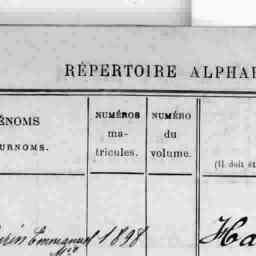 RÉPERTOIRE ALPHA
ÉNOMS
URNOMS.
NUMÉROS
ma-
tricules.
NUMÉRO
du
volume.
(Il doit ét
Emmanuel 1898 Ha